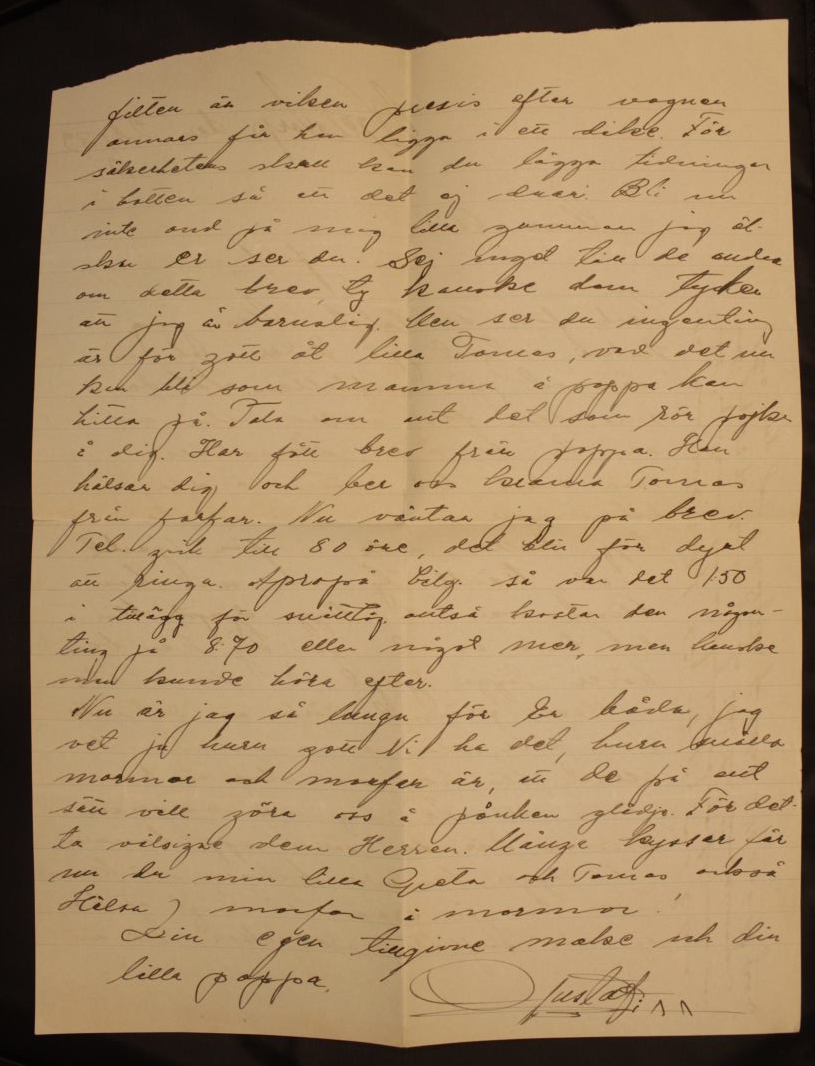 filten är viken precis efter vagnen
annars får han ligga i ett dike. För
säkerhetens skull kan du lägga tidningar
i botten så att det ej drar. Bli nu
inte ond på mig lilla gumman jag äl-
skar er ser du. Sej inget till de andra
om detta brev, ty kanske dom tycker
att jag är barnslig. Men ser du ingenting
är för gott åt lilla Tomas, vad det nu
kan bli som mamma å pappa kan
hitta på. Tala om allt det som rör pojken
å dig. Har fått brev från pappa. Han
hälsar dig och ber oss krama Tomas
från farfar. Nu väntar jag på brev.
Tel. gick till 80 öre, det blir för dyrt
att ringa. Apropå bilj. så var det 1.50
i tillägg för snälltåg, alltså kostar den någon-
ting på 8.70 eller något mer, men kanske
man kunde höra efter.
Nu är jag så lungn för Er båda, jag
vet ju huru gott Ni ha det, huru snälla
mormor och morfar är, att de på allt
sätt vill göra oss å pånken glädje. För det-
ta välsigne dem Herren. Många kyssar får
nu du min lilla Greta och Tomas också
Hälsa morfar å mormor!
Din egen tillgivne make och din
lilla pappa.
Gustaf